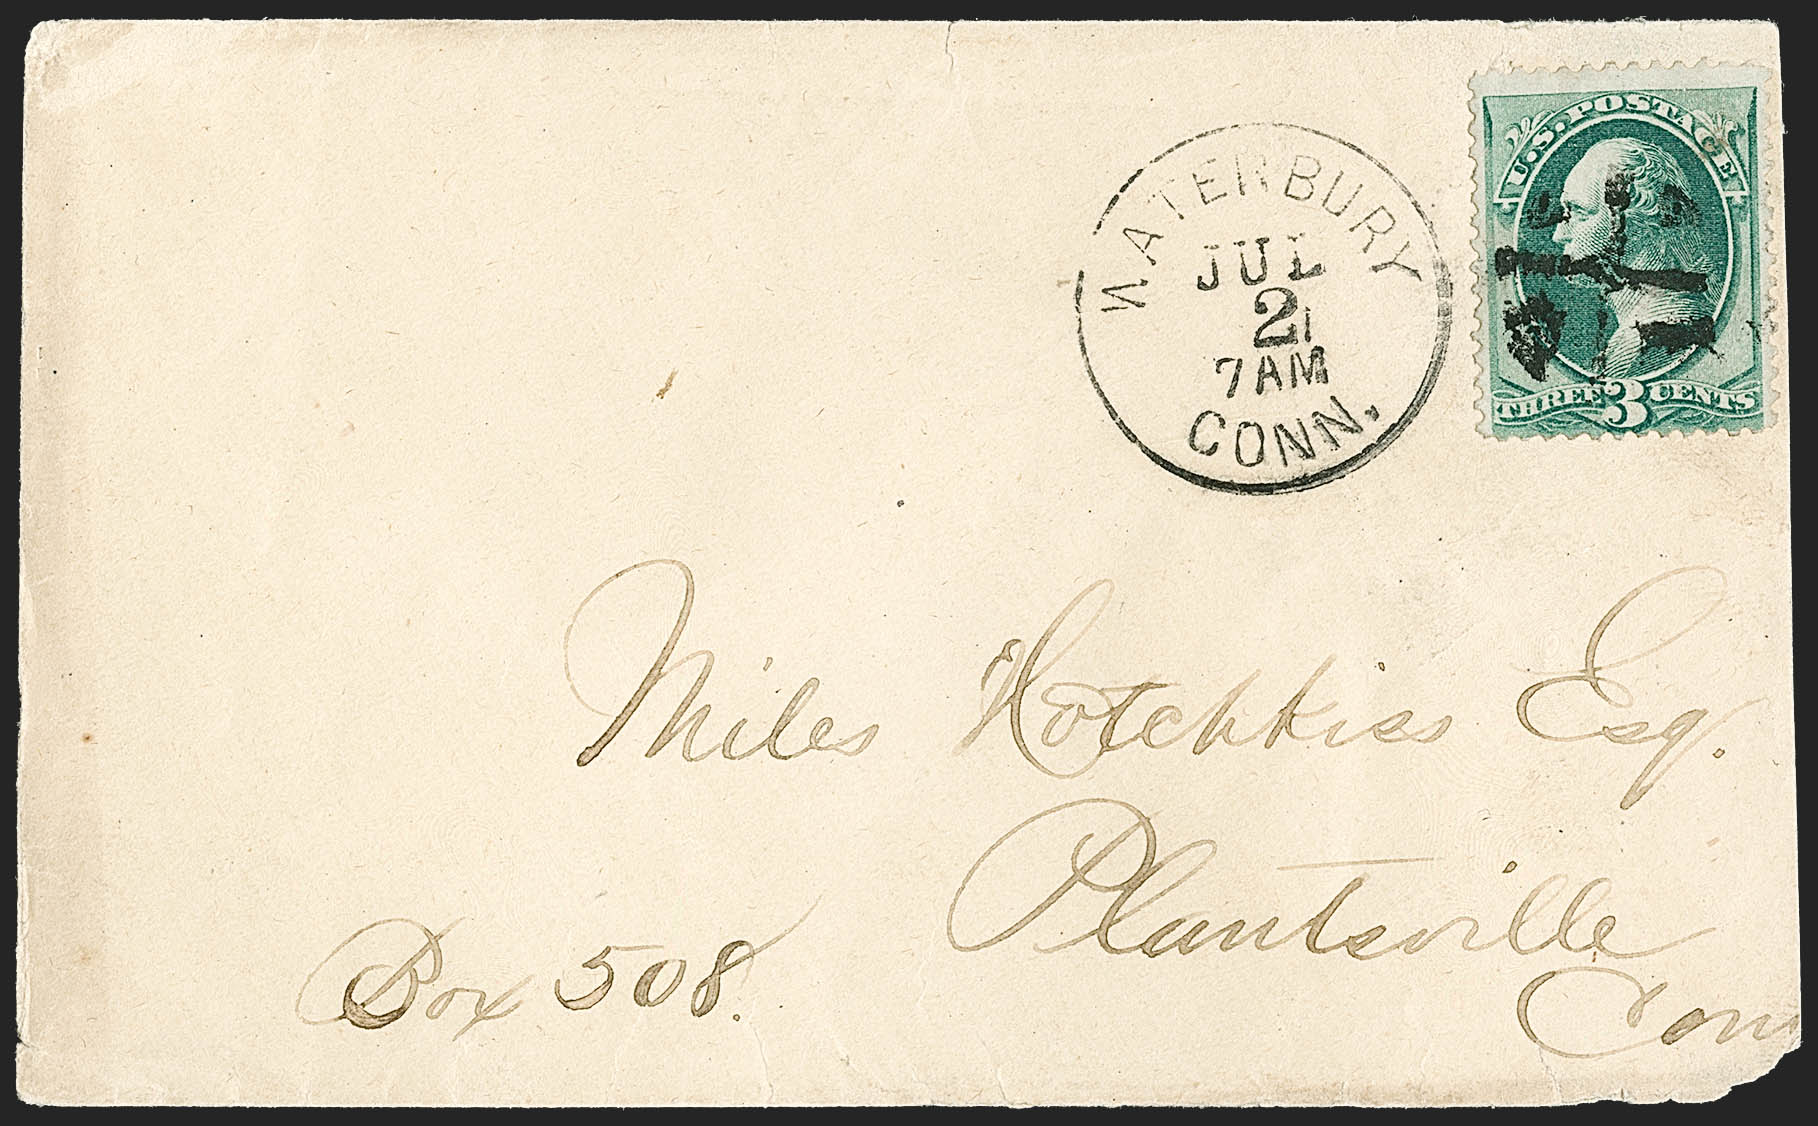 WATERBURY
JUL
21
7AM
CONN.
U.S. POSTAGE
THREE 3 CENTS
Miles Hotchkiss Esq.
Plantsville
Conn
Box 508.